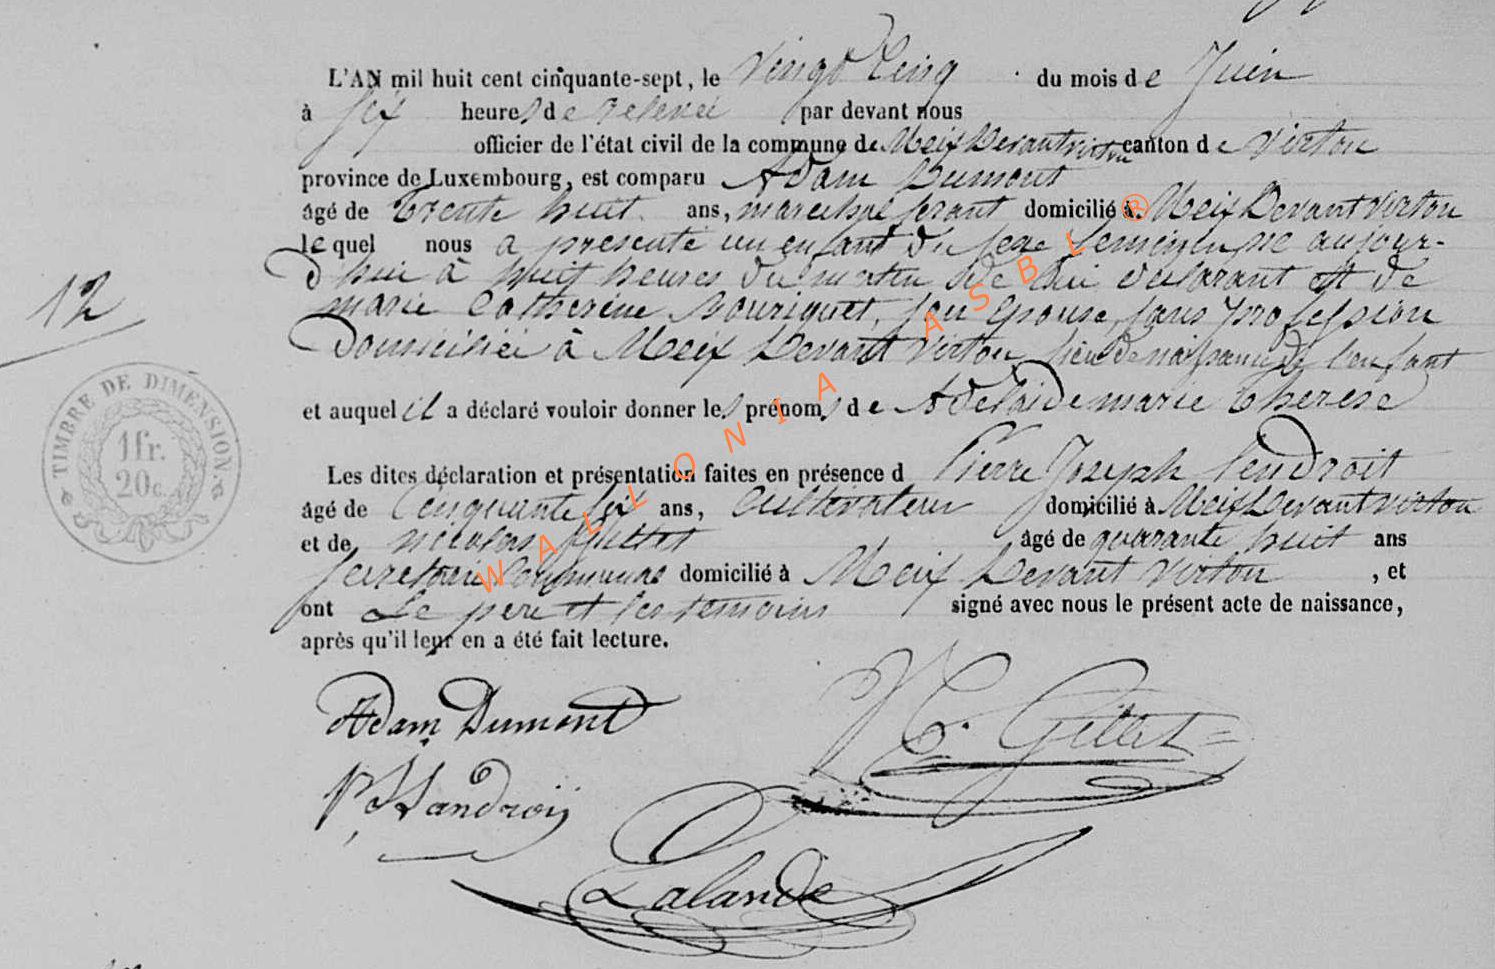 L'AN mil huit cent cinquante-sept, le vingt cinq du mois de Juin
à six heures de relevée par devant nous
officier de l'état civil de la commune de Meix Devant virton canton de virton
province de Luxembourg, est comparu Adam Dumont
âgé de Trente huit ans, marechal ferant domicilié à Meix Devant virton
lequel nous a presenté un enfant du sexe feminin né aujour-
d'hui à huit heures du matin de lui déclarant et de
marie Catherine Bouriquet, son épouse, sans profession
Domiciliée à Meix Devant Virton lieu de naissance de l'enfant
et auquel il a déclaré vouloir donner les prénoms de Adelaide marie Therese
12
TIMBRE DE DIMENSION
1 fr.
20 c.
Les dites déclaration et présentation faites en présence d Pierre Joseph Lendroit
âgé de Cinquante six ans, Cultivateur domicilié à Meix Devant virton
et de nicolas Gillet âgé de quarante huit ans
secretaire communal domicilié à Meix Devant virton , et
ont Le pere et les temoins signé avec nous le présent acte de naissance,
après qu'il leur en a été fait lecture.
Adam Dumont
N. Gillet
Landroit
Lalande
WALLONIA ASBL ®